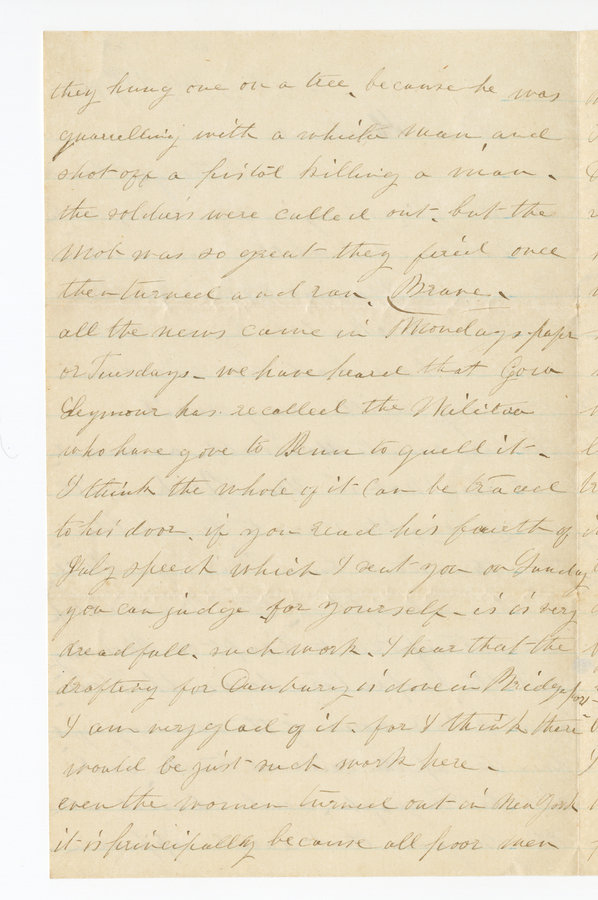 they hung one on a tree, because he was
quarrelling with a white man, and
shot off a pistol killing a man.
the soldiers were called out. but the
Mob was so great they fired once
then turned and ran. (Brave.
all the news came in Mondays paper
or Tuesdays_ we have heard that Gov
Seymour has recalled the Militia
who have gove to Penn to quell it_
I think the whole of it can be traced
to his door. if you read his fourth of
July speech which I sent you on Sunday
you can judge for yourself_ is is very
dreadfull. such work. I hear that the
drafting for Danbury is done in Bridgeport
I am very glad of it. for I think there
would be just such work here_
even the women turned out in New York
it is principally because all poor men